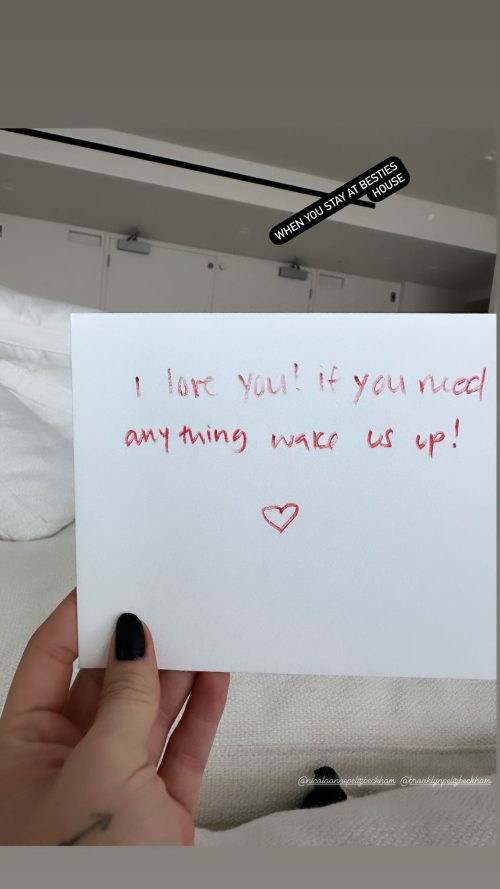 WHEN YOU STAY AT BESTIES
HOUSE
I love you! if you need
anything wake us up!
@nicolaannepeltzbeckham @brooklynpeltzbeckham